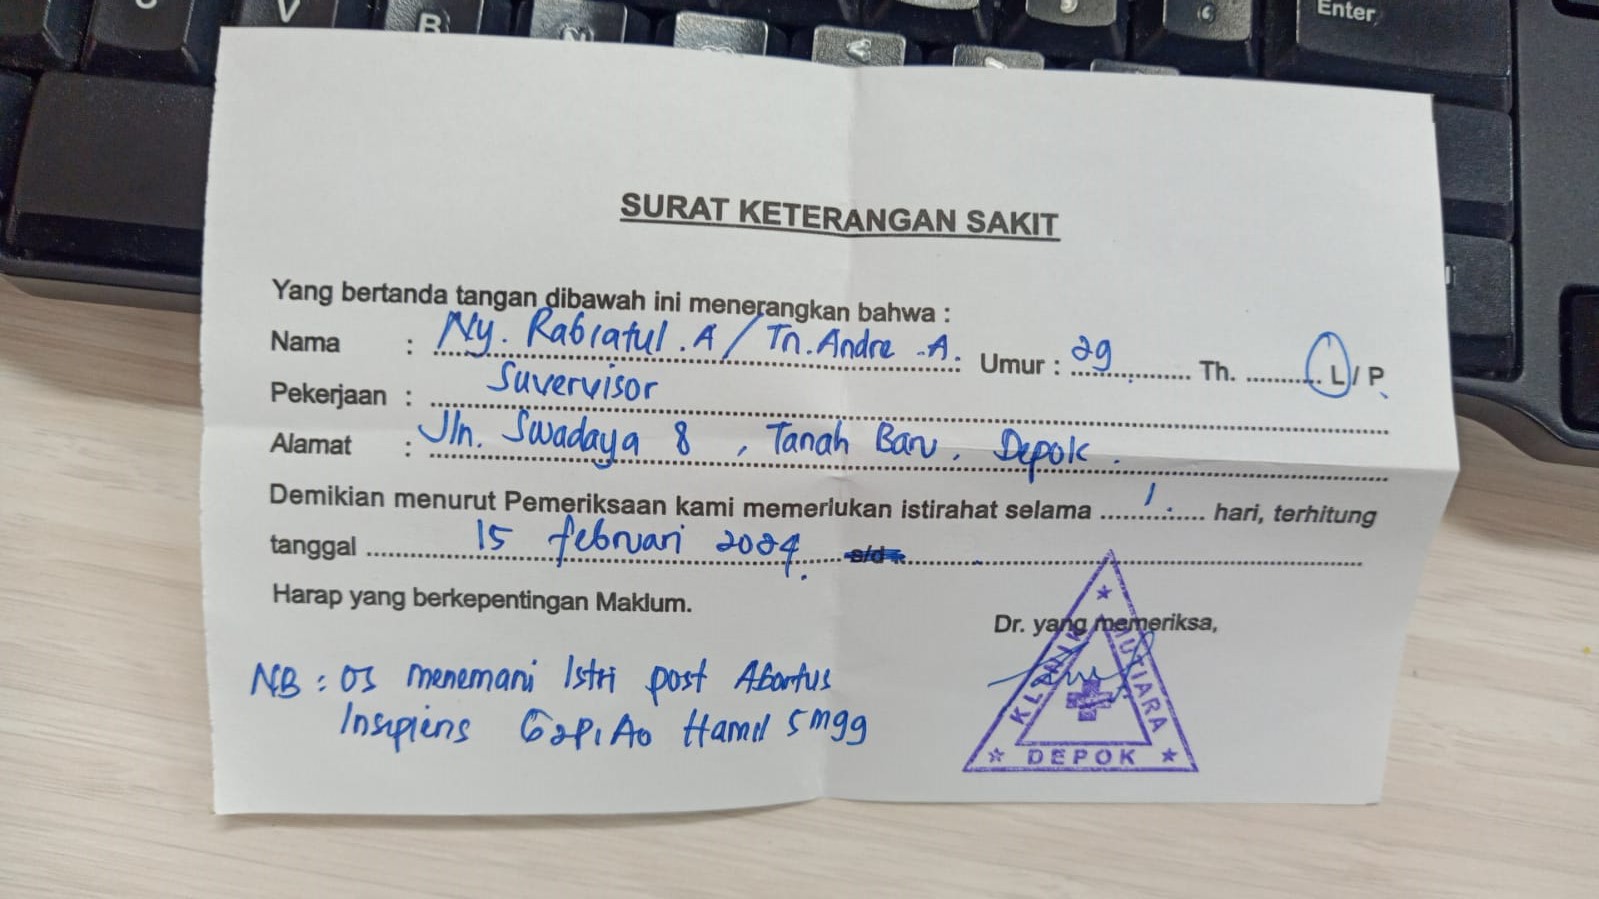 C
V
B
N
Enter
SURAT KETERANGAN SAKIT
Yang bertanda tangan dibawah ini menerangkan bahwa :
Nama : Ny. Rabiatul .A / Tn. Andre .A. Umur : 29 Th. L / P
Pekerjaan : Suvervisor
Alamat : Jln. Swadaya 8 , Tanah Baru , Depok .
Demikian menurut Pemeriksaan kami memerlukan istirahat selama 1 hari, terhitung
tanggal 15 februari 2024. s/d
Harap yang berkepentingan Maklum.
Dr. yang memeriksa,
NB : OS menemani Istri post Abortus
Insipiens G2P1A0 Hamil 5 mgg
KLINIK MUTIARA
DEPOK